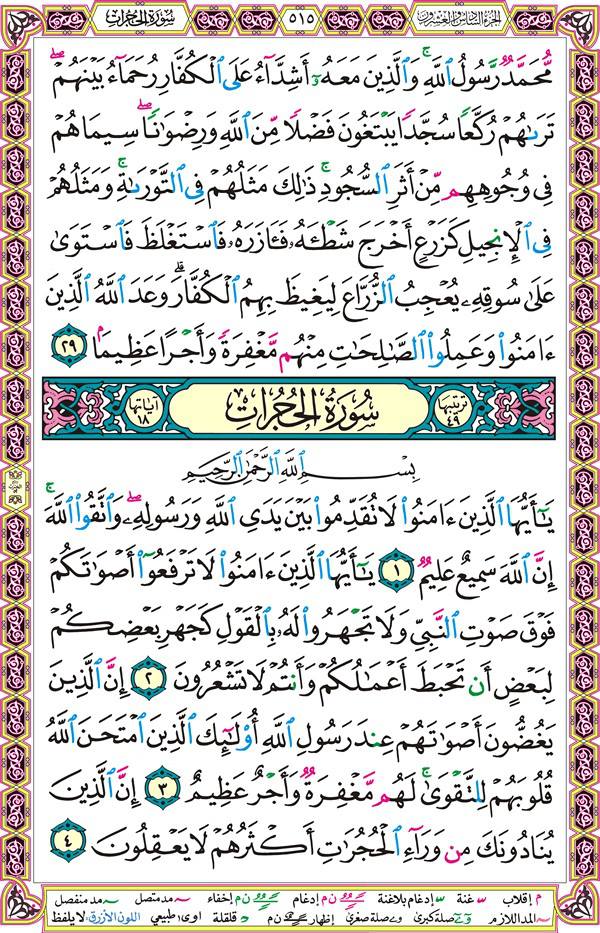 الجزء السادس والعشرون ٥١٥ سورة الحجرات
مُّحَمَّدٌ رَّسُولُ ٱللَّهِ ۚ وَٱلَّذِينَ مَعَهُۥٓ أَشِدَّآءُ عَلَى ٱلْكُفَّارِ رُحَمَآءُ بَيْنَهُمْ ۖ
تَرَىٰهُمْ رُكَّعًا سُجَّدًا يَبْتَغُونَ فَضْلًا مِّنَ ٱللَّهِ وَرِضْوَٰنًا ۖ سِيمَاهُمْ
فِى وُجُوهِهِم مِّنْ أَثَرِ ٱلسُّجُودِ ۚ ذَٰلِكَ مَثَلُهُمْ فِى ٱلتَّوْرَىٰةِ ۚ وَمَثَلُهُمْ
فِى ٱلْإِنجِيلِ كَزَرْعٍ أَخْرَجَ شَطْـَٔهُۥ فَـَٔازَرَهُۥ فَٱسْتَغْلَظَ فَٱسْتَوَىٰ
عَلَىٰ سُوقِهِۦ يُعْجِبُ ٱلزُّرَّاعَ لِيَغِيظَ بِهِمُ ٱلْكُفَّارَ ۗ وَعَدَ ٱللَّهُ ٱلَّذِينَ
ءَامَنُوا۟ وَعَمِلُوا۟ ٱلصَّٰلِحَٰتِ مِنْهُم مَّغْفِرَةً وَأَجْرًا عَظِيمًۢا ٢٩
ترتيبها ٤٩ سُورَةُ الحُجُرَاتِ آياتها ١٨
بِسْمِ ٱللَّهِ ٱلرَّحْمَٰنِ ٱلرَّحِيمِ
يَٰٓأَيُّهَا ٱلَّذِينَ ءَامَنُوا۟ لَا تُقَدِّمُوا۟ بَيْنَ يَدَىِ ٱللَّهِ وَرَسُولِهِۦ ۖ وَٱتَّقُوا۟ ٱللَّهَ ۚ
إِنَّ ٱللَّهَ سَمِيعٌ عَلِيمٌ ١ يَٰٓأَيُّهَا ٱلَّذِينَ ءَامَنُوا۟ لَا تَرْفَعُوٓا۟ أَصْوَٰتَكُمْ
فَوْقَ صَوْتِ ٱلنَّبِىِّ وَلَا تَجْهَرُوا۟ لَهُۥ بِٱلْقَوْلِ كَجَهْرِ بَعْضِكُمْ
لِبَعْضٍ أَن تَحْبَطَ أَعْمَٰلُكُمْ وَأَنتُمْ لَا تَشْعُرُونَ ٢ إِنَّ ٱلَّذِينَ
يَغُضُّونَ أَصْوَٰتَهُمْ عِندَ رَسُولِ ٱللَّهِ أُو۟لَٰٓئِكَ ٱلَّذِينَ ٱمْتَحَنَ ٱللَّهُ
قُلُوبَهُمْ لِلتَّقْوَىٰ ۚ لَهُم مَّغْفِرَةٌ وَأَجْرٌ عَظِيمٌ ٣ إِنَّ ٱلَّذِينَ
يُنَادُونَكَ مِن وَرَآءِ ٱلْحُجُرَٰتِ أَكْثَرُهُمْ لَا يَعْقِلُونَ ٤
م إقلاب غنة إدغام بلاغنة ن م إدغام إخفاء مد متصل مد منفصل
المد اللازم صلة كبرى صلة صغرى إظهار ن م قلقلة اوى طبيعي اللون الأزرق: لا يلفظ